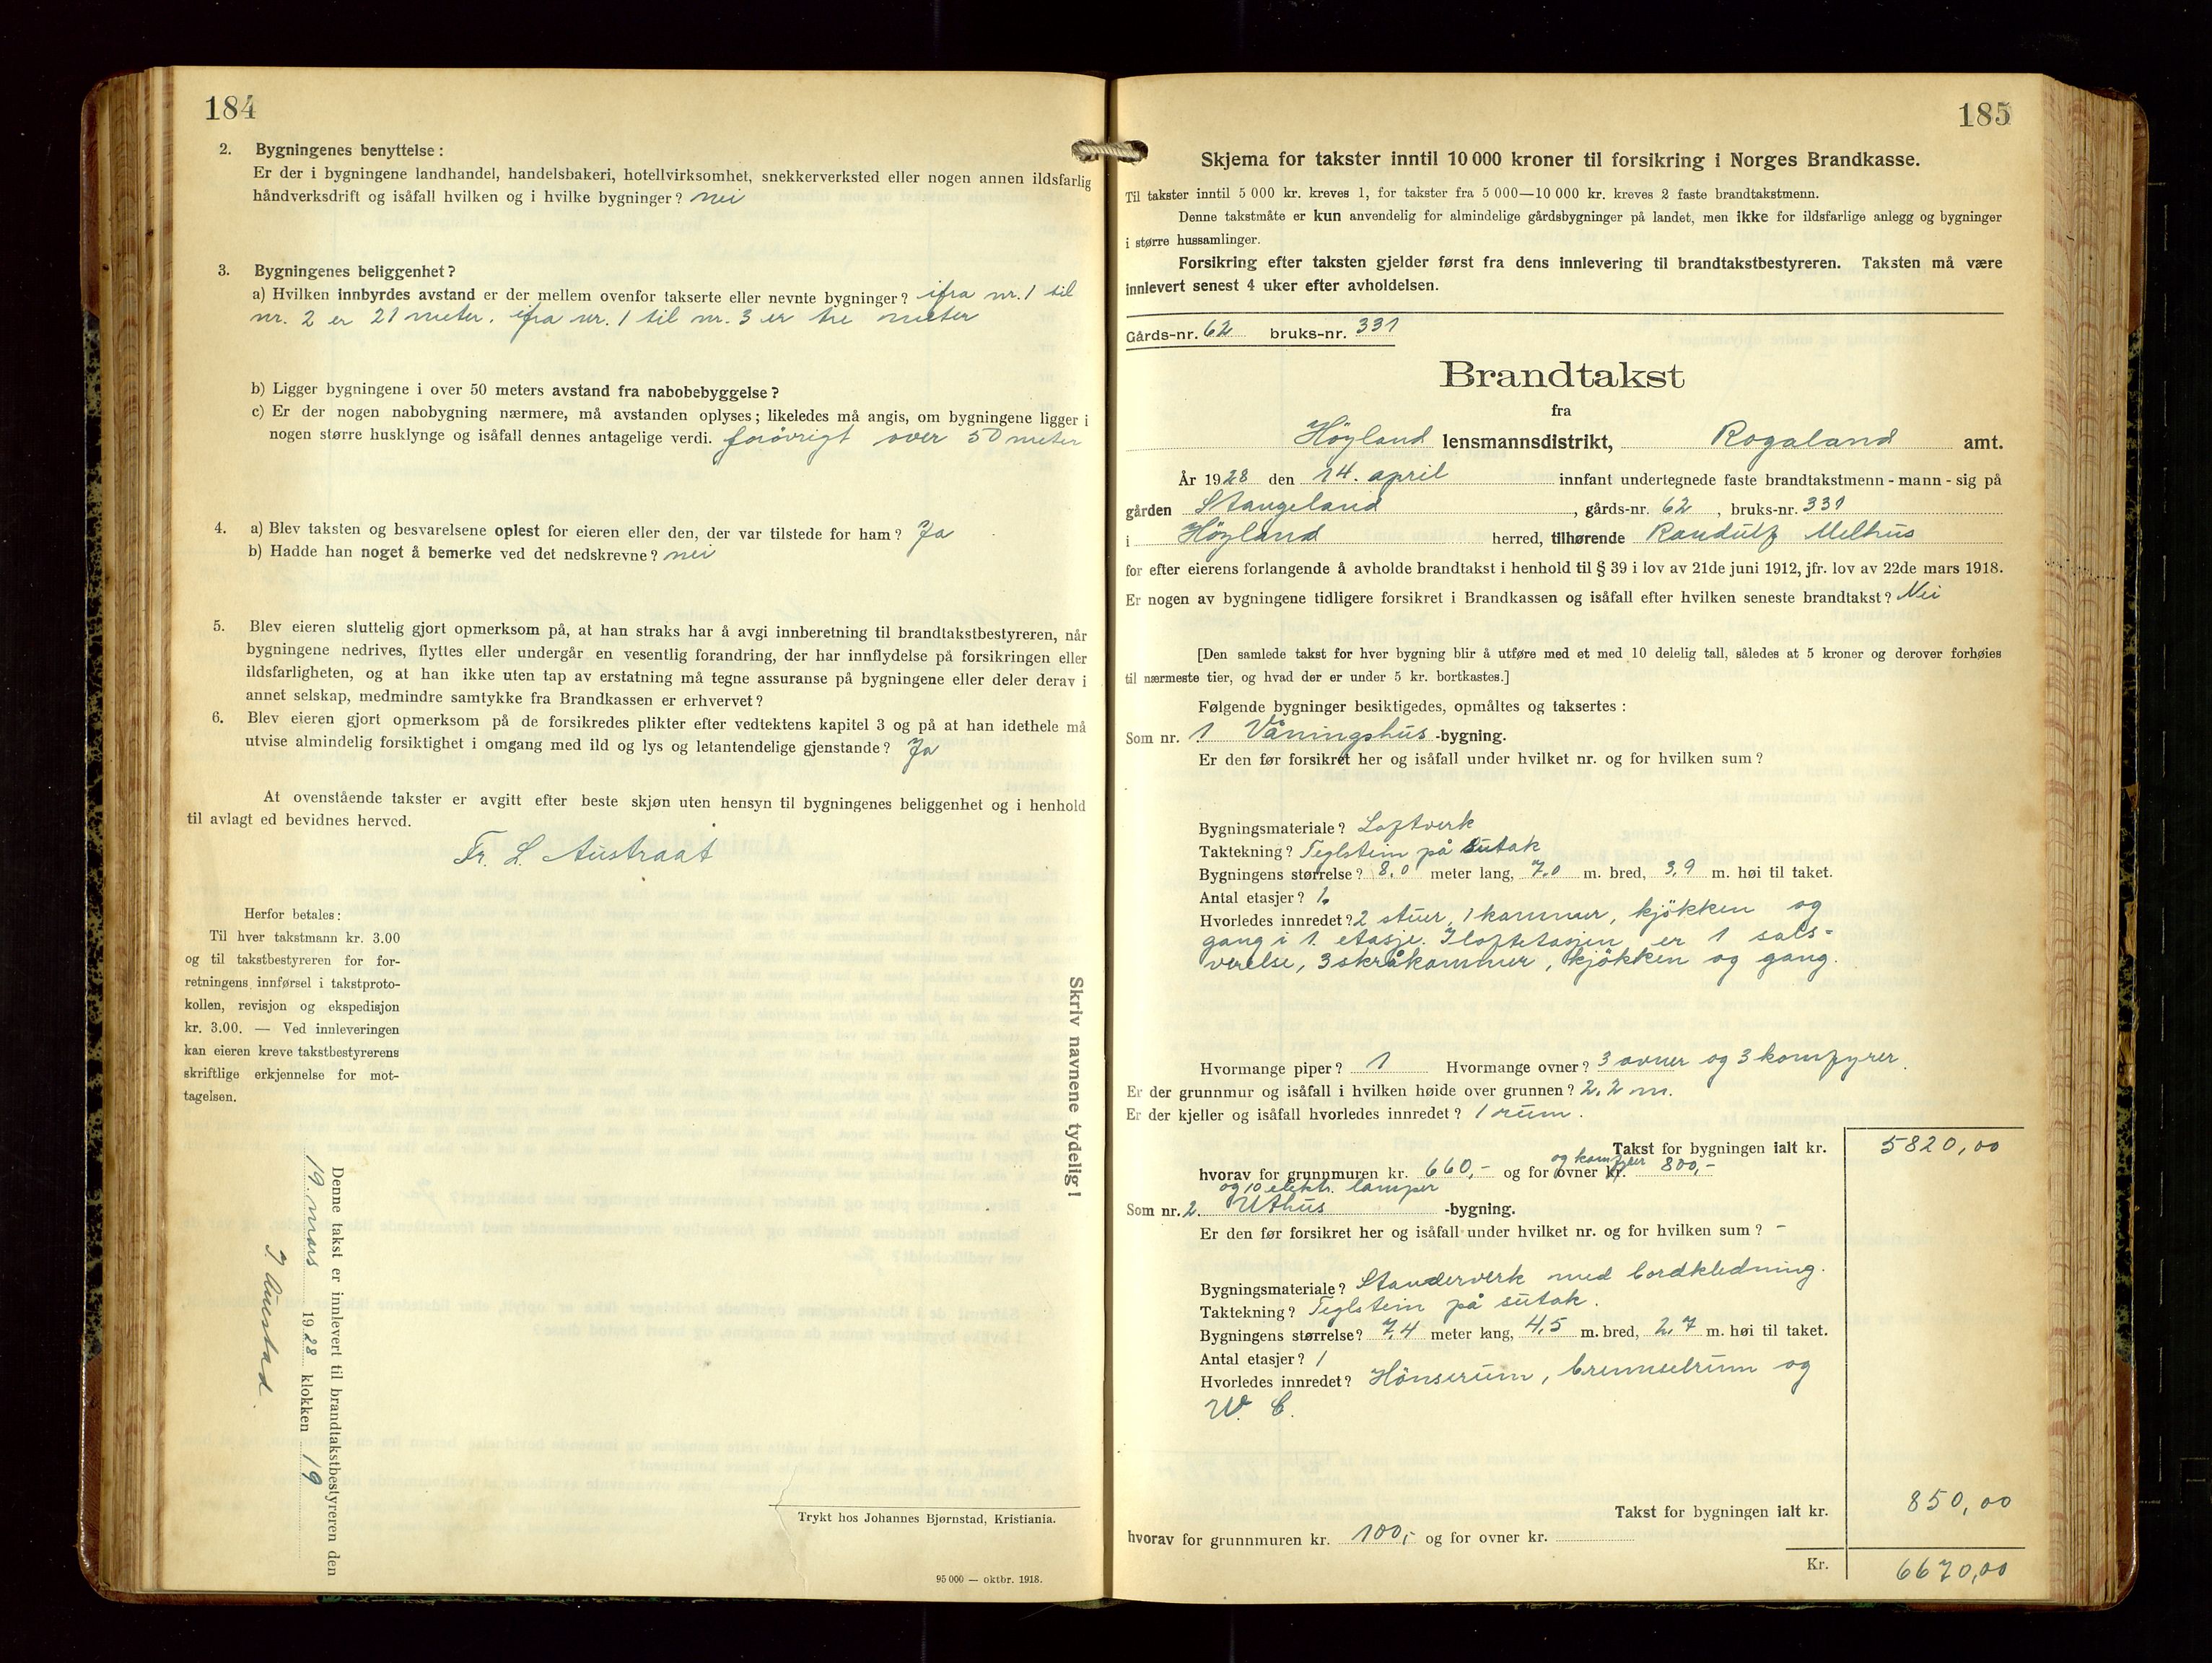 184
2. Bygningenes benyttelse:
Er der i bygningene landhandel, handelsbakeri, hotellvirksomhet, snekkerverksted eller nogen annen ildsfarlig
håndverksdrift og isåfall hvilken og i hvilke bygninger? nei
3. Bygningenes beliggenhet?
a) Hvilken innbyrdes avstand er der mellem ovenfor takserte eller nevnte bygninger? ifra nr. 1 til
nr. 2 er 21 meter. ifra nr. 1 til nr. 3 er tre meter
b) Ligger bygningene i over 50 meters avstand fra nabobebyggelse?
c) Er der nogen nabobygning nærmere, må avstanden oplyses; likeledes må angis, om bygningene ligger i
nogen større husklynge og isåfall dennes antagelige verdi. forövrigt over 50 meter
4. a) Blev taksten og besvarelsene oplest for eieren eller den, der var tilstede for ham? Ja
b) Hadde han noget å bemerke ved det nedskrevne? nei
5. Blev eieren sluttelig gjort opmerksom på, at han straks har å avgi innberetning til brandtakstbestyreren, når
bygningene nedrives, flyttes eller undergår en vesentlig forandring, der har innflydelse på forsikringen eller
ildsfarligheten, og at han ikke uten tap av erstatning må tegne assuranse på bygningene eller deler derav i
annet selskap, medmindre samtykke fra Brandkassen er erhvervet?
6. Blev eieren gjort opmerksom på de forsikredes plikter efter vedtektens kapitel 3 og på at han idethele må
utvise almindelig forsiktighet i omgang med ild og lys og letantendelige gjenstande? Ja
At ovenstående takster er avgitt efter beste skjøn uten hensyn til bygningenes beliggenhet og i henhold
til avlagt ed bevidnes herved.
Fr. L. Austraat
Herfor betales:
Til hver takstmann kr. 3.00
og til takstbestyreren for for-
retningens innførsel i takstproto-
kollen, revisjon og ekspedisjon
kr. 3.00. — Ved innleveringen
kan eieren kreve takstbestyrerens
skriftlige erkjennelse for mot-
tagelsen.
Skriv navnene tydelig!
Denne takst er innlevert til brandtakstbestyreren den
19 mars 1928 klokken 19
Trykt hos Johannes Bjørnstad, Kristiania.
95 000 — oktbr. 1918.
185
Skjema for takster inntil 10 000 kroner til forsikring i Norges Brandkasse.
Til takster inntil 5 000 kr. kreves 1, for takster fra 5 000—10 000 kr. kreves 2 faste brandtakstmenn.
Denne takstmåte er kun anvendelig for almindelige gårdsbygninger på landet, men ikke for ildsfarlige anlegg og bygninger
i større hussamlinger.
Forsikring efter taksten gjelder først fra dens innlevering til brandtakstbestyreren. Taksten må være
innlevert senest 4 uker efter avholdelsen.
Gårds-nr. 62 bruks-nr. 331
Brandtakst
fra
Höyland lensmannsdistrikt, Rogaland amt.
År 1928 den 14. april innfant undertegnede faste brandtakstmenn - mann - sig på
gården Stangeland, gårds-nr. 62, bruks-nr. 331
i Höyland herred, tilhørende Randulf Melhus
for efter eierens forlangende å avholde brandtakst i henhold til § 39 i lov av 21de juni 1912, jfr. lov av 22de mars 1918.
Er nogen av bygningene tidligere forsikret i Brandkassen og isåfall efter hvilken seneste brandtakst? Nei
[Den samlede takst for hver bygning blir å utføre med et med 10 delelig tall, således at 5 kroner og derover forhøies
til nærmeste tier, og hvad der er under 5 kr. bortkastes.]
Følgende bygninger besiktigedes, opmåltes og taksertes:
Som nr. 1 Våningshus-bygning.
Er den før forsikret her og isåfall under hvilket nr. og for hvilken sum?
Bygningsmateriale? Loftverk
Taktekning? Teglstein på sutak
Bygningens størrelse? 8,0 meter lang, 7,0 m. bred, 3,9 m. høi til taket.
Antal etasjer? 1.
Hvorledes innredet? 2 stuer, 1 kammer, kjökken og
gang i 1. etasje. I loftetasjen er 1 sals-
verelse, 3 skråkammer, kjökken og gang.
Hvormange piper? 1 Hvormange ovner? 3 ovner og 3 komfyrer.
Er der grunnmur og isåfall i hvilken høide over grunnen? 2,2 m.
Er der kjeller og isåfall hvorledes innredet? 1 rum.
Takst for bygningen ialt kr. 5820,00
og komfyrer
hvorav for grunnmuren kr. 660,- og for ovner kr. 800,-
og 10 elektr. lamper
Som nr. 2. Uthus -bygning.
Er den før forsikret her og isåfall under hvilket nr. og for hvilken sum? -
Bygningsmateriale? Standerverk med bordkledning.
Taktekning? Teglstein på sutak.
Bygningens størrelse? 7,4 meter lang, 4,5 m. bred, 2,7 m. høi til taket.
Antal etasjer? 1
Hvorledes innredet? Hönserum, brenselrum og
W. C.
Takst for bygningen ialt kr. 850,00
hvorav for grunnmuren kr. 100,- og for ovner kr.
Kr. 6670,00